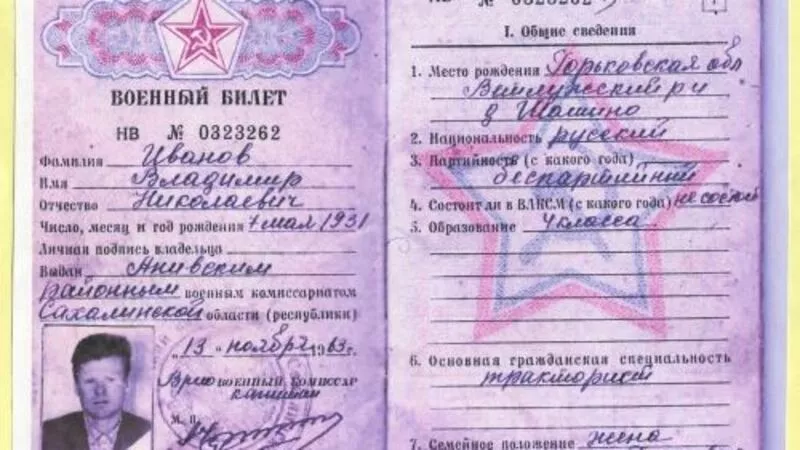 ВОЕННЫЙ БИЛЕТ
НВ № 0323262
Фамилия Иванов
Имя Владимир
Отчество Николаевич
Число, месяц и год рождения 7 мая 1931
Личная подпись владельца
Выдан Анивским
районным военным комиссариатом
Сахалинской области (республики)
„13 " ноября 1963 г.
Врио ВОЕННЫЙ КОМИССАР
капитан
М. П.
№ 0323262
I. Общие сведения
1. Место рождения Горьковская обл
Ветлужский р-н
д Шашино
2. Национальность русский
3. Партийность (с какого года)
беспартийный
4. Состоит ли в ВЛКСМ (с какого года) не состоит
5. Образование 4 класса
6. Основная гражданская специальность
тракторист
7. Семейное положение жена